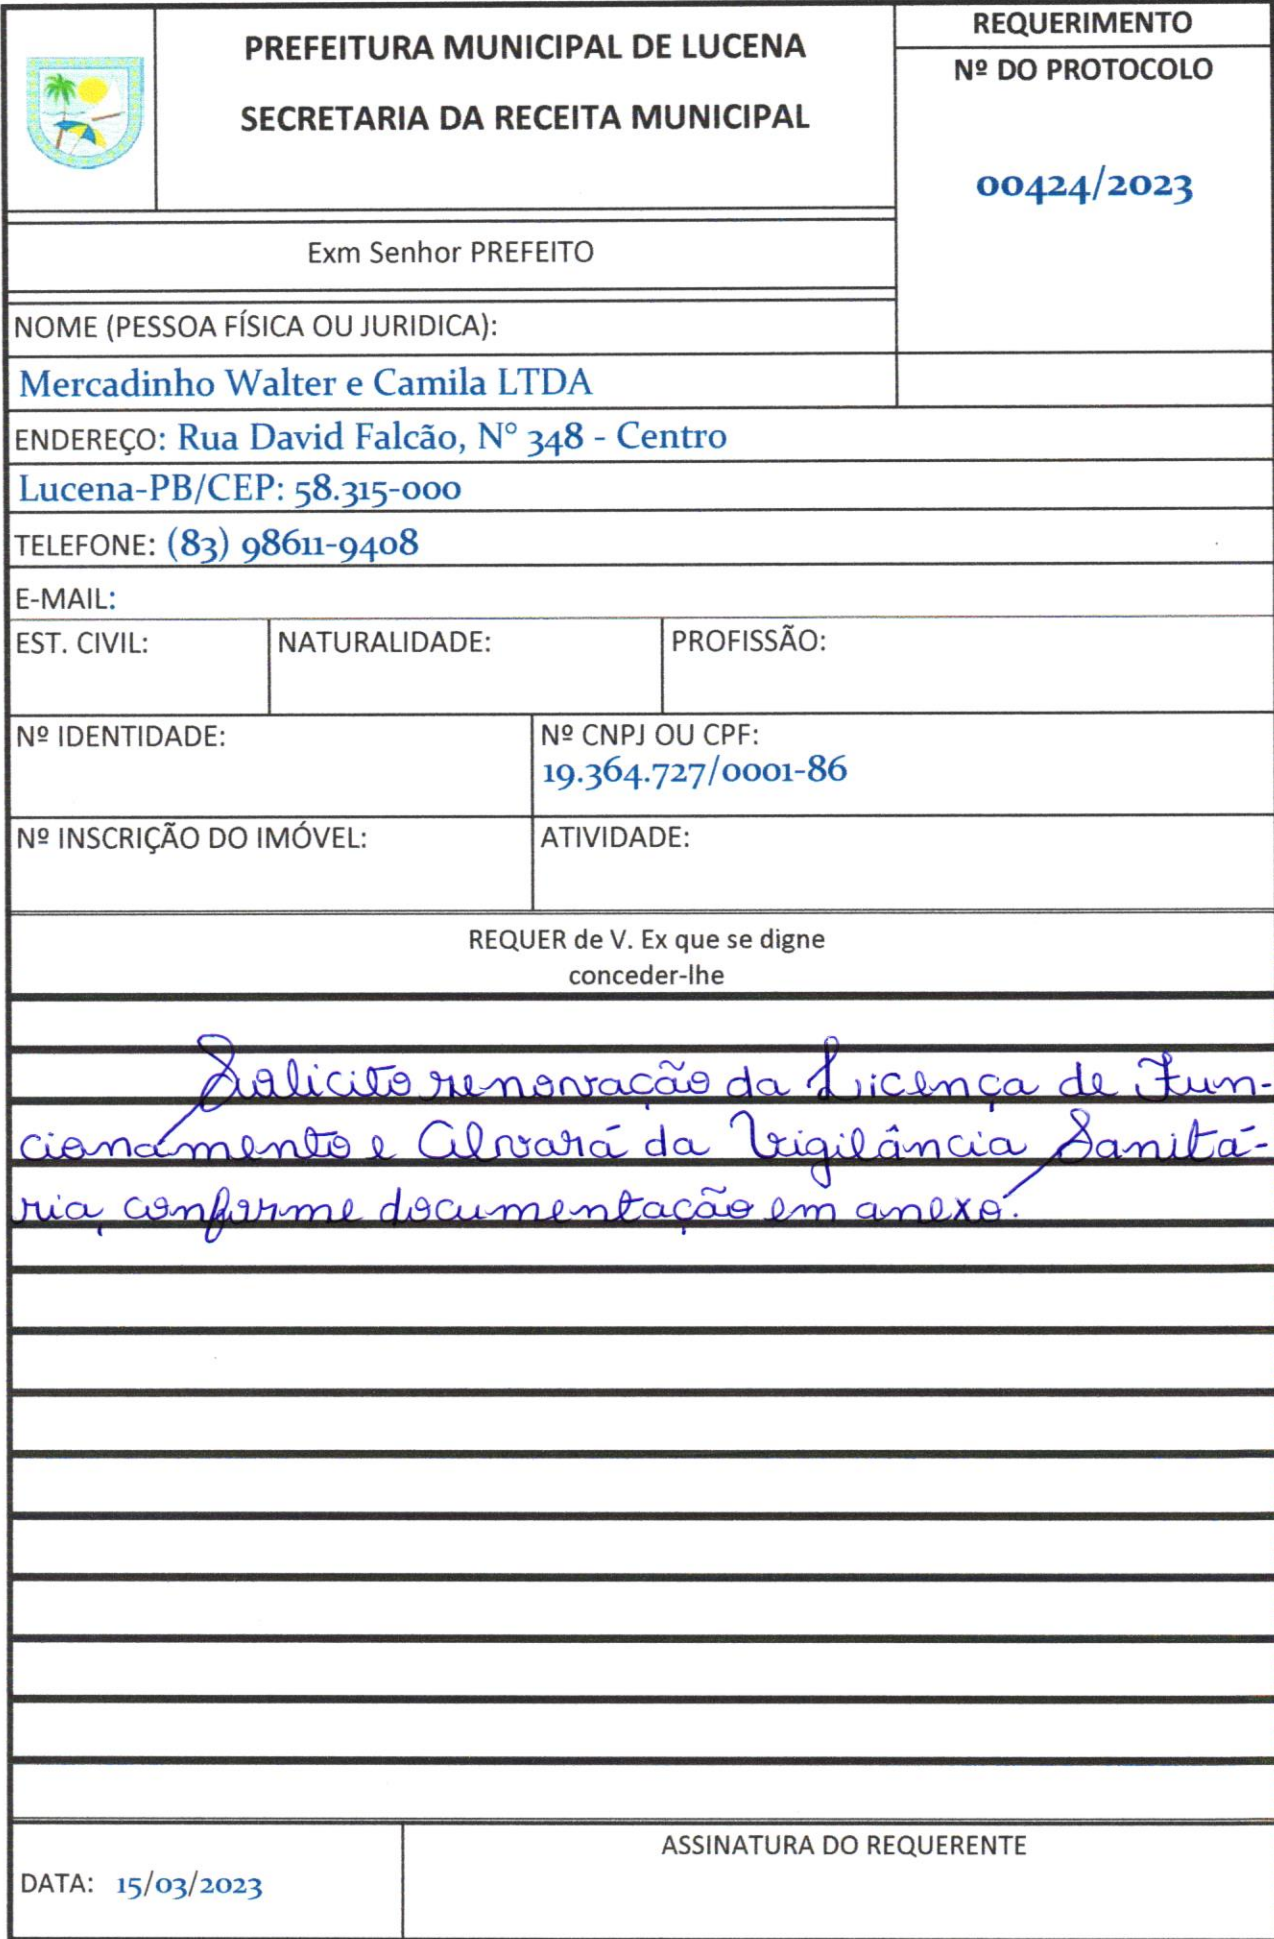 PREFEITURA MUNICIPAL DE LUCENA
SECRETARIA DA RECEITA MUNICIPAL
REQUERIMENTO
Nº DO PROTOCOLO
00424/2023
Exm Senhor PREFEITO
NOME (PESSOA FÍSICA OU JURIDICA):
Mercadinho Walter e Camila LTDA
ENDEREÇO: Rua David Falcão, N° 348 - Centro
Lucena-PB/CEP: 58.315-000
TELEFONE: (83) 98611-9408
E-MAIL:
EST. CIVIL:
NATURALIDADE:
PROFISSÃO:
Nº IDENTIDADE:
Nº CNPJ OU CPF:
19.364.727/0001-86
Nº INSCRIÇÃO DO IMÓVEL:
ATIVIDADE:
REQUER de V. Ex que se digne
conceder-lhe
Solicito renovação da Licença de Fun-
cionamento e Alvará da Vigilância Sanitá-
ria, conforme documentação em anexo.
DATA: 15/03/2023
ASSINATURA DO REQUERENTE